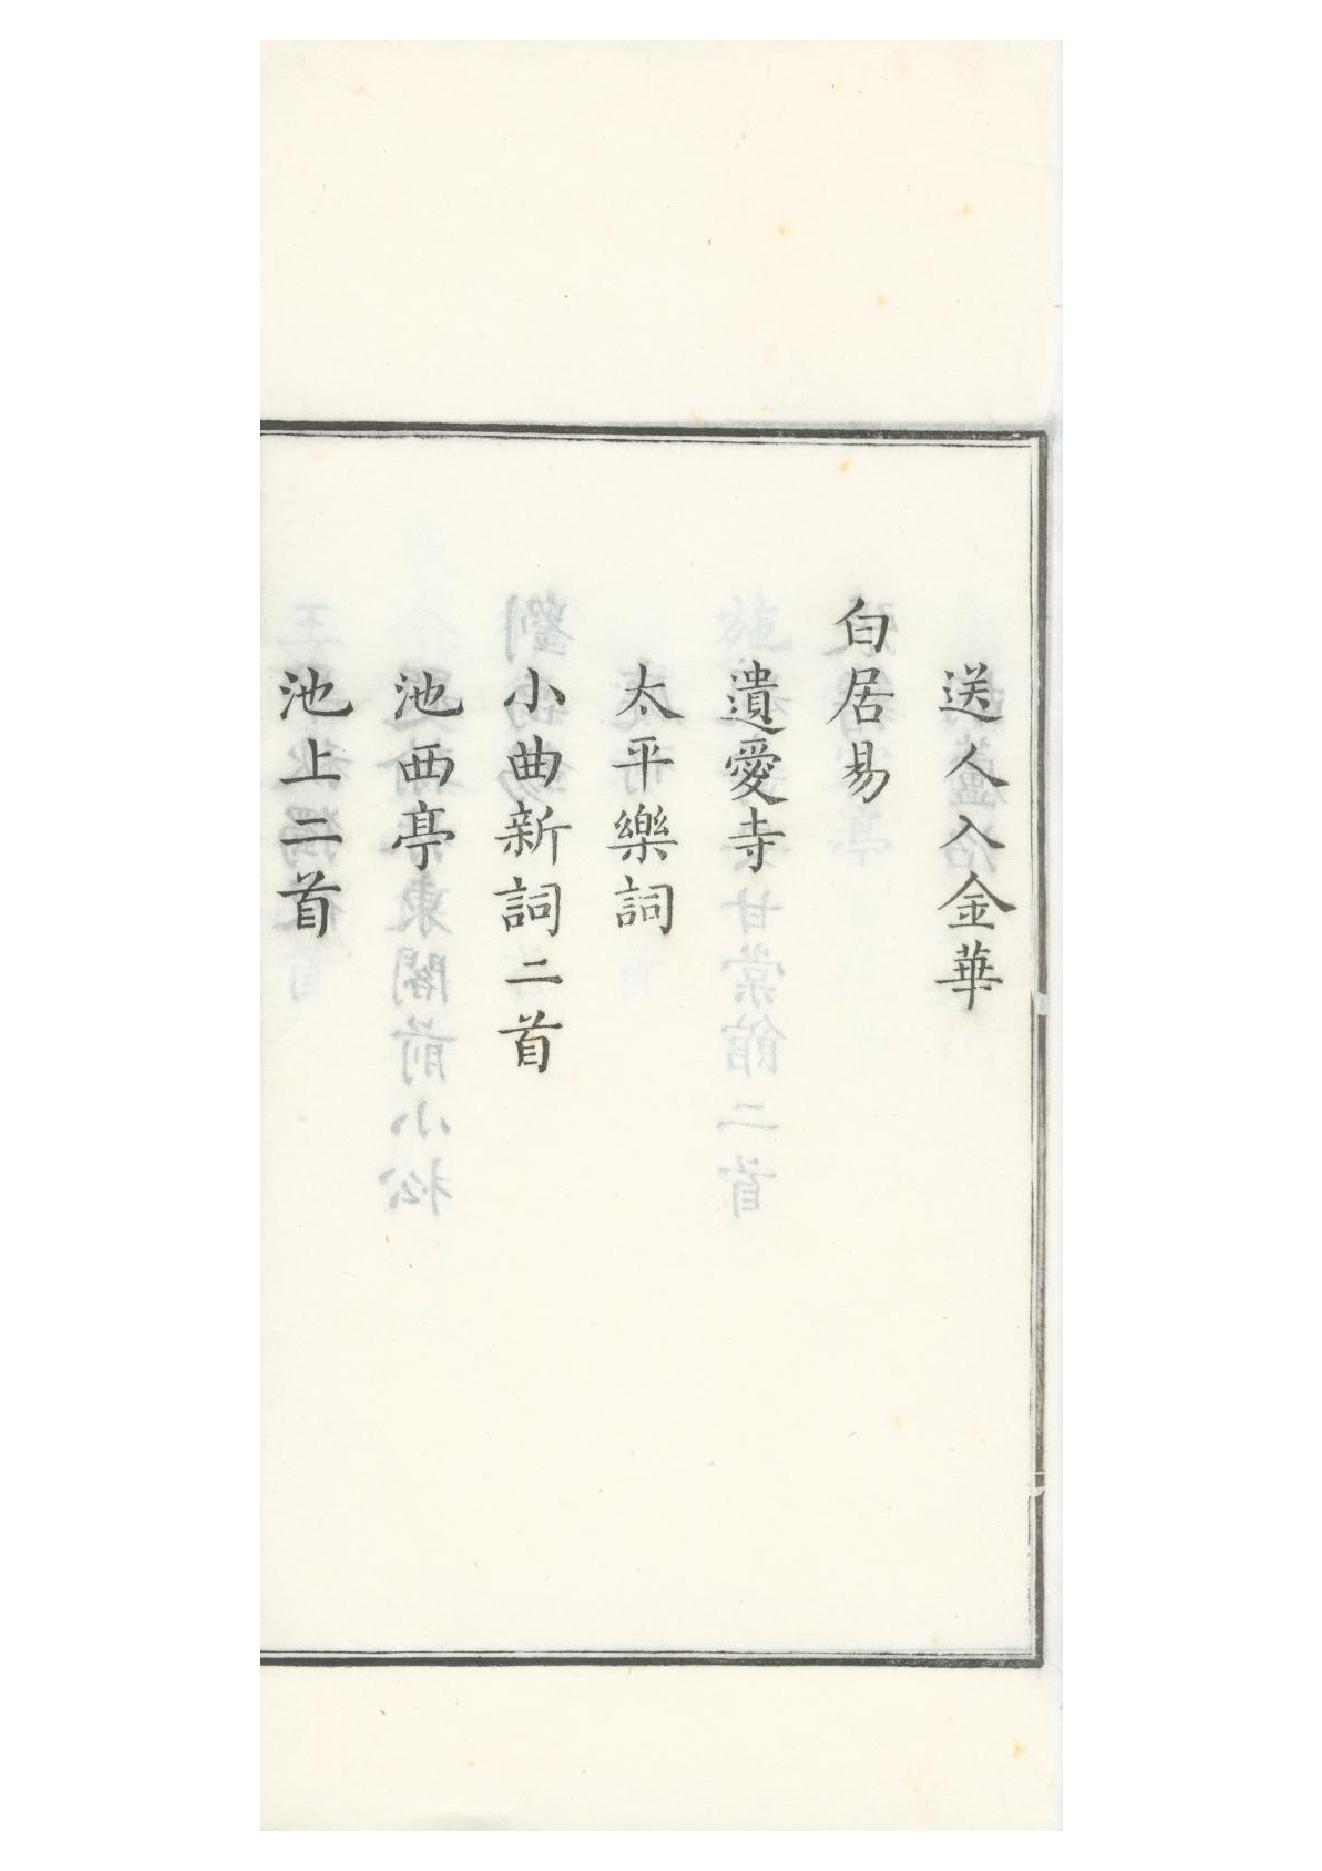 送人入金華
白居易
遺愛寺
太平樂詞
小曲新詞二首
池西亭
池上二首